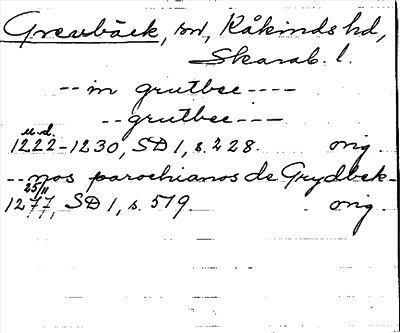 Grevbäck, sn, Kåkinds hd,
Skarab. l.
-- in grutbec ----
-- grutbec ---
u.d.
1222-1230, SD 1, s. 228. orig.
-- nos parochianos de Grydbek-
25/11
1277, SD 1, s. 519. orig.